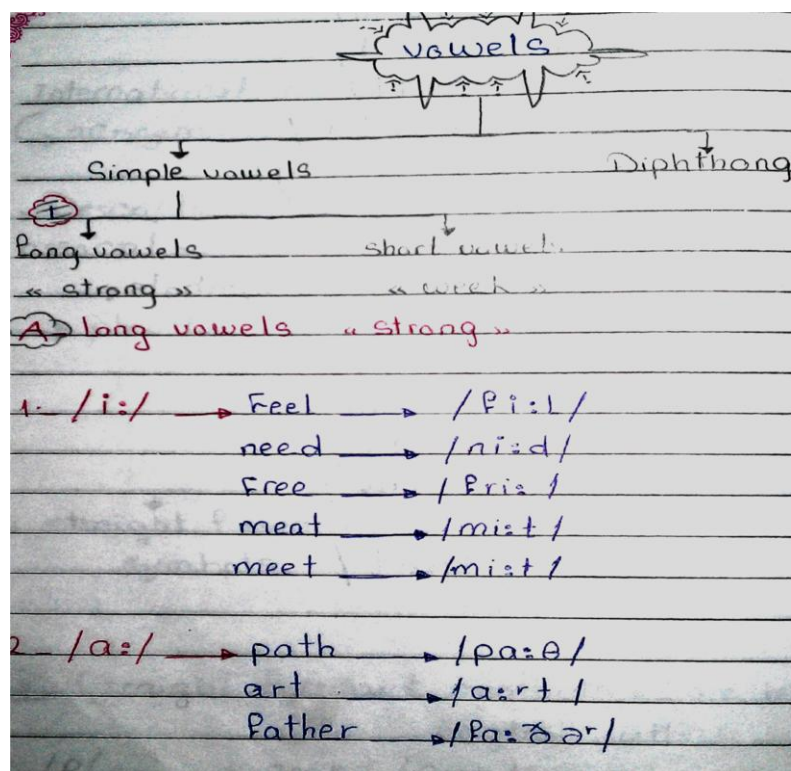 vowels
Simple vowels Diphthong
I
long vowels short vowels
« strong » « week »
A- long vowels « strong »
1- /i:/ → Feel → /fi:l/
need → /ni:d/
Free → /fri:/
meat → /mi:t/
meet → /mi:t/
2- /a:/ → path → /pa:θ/
art → /a:rt/
father → /fa:ðəʳ/